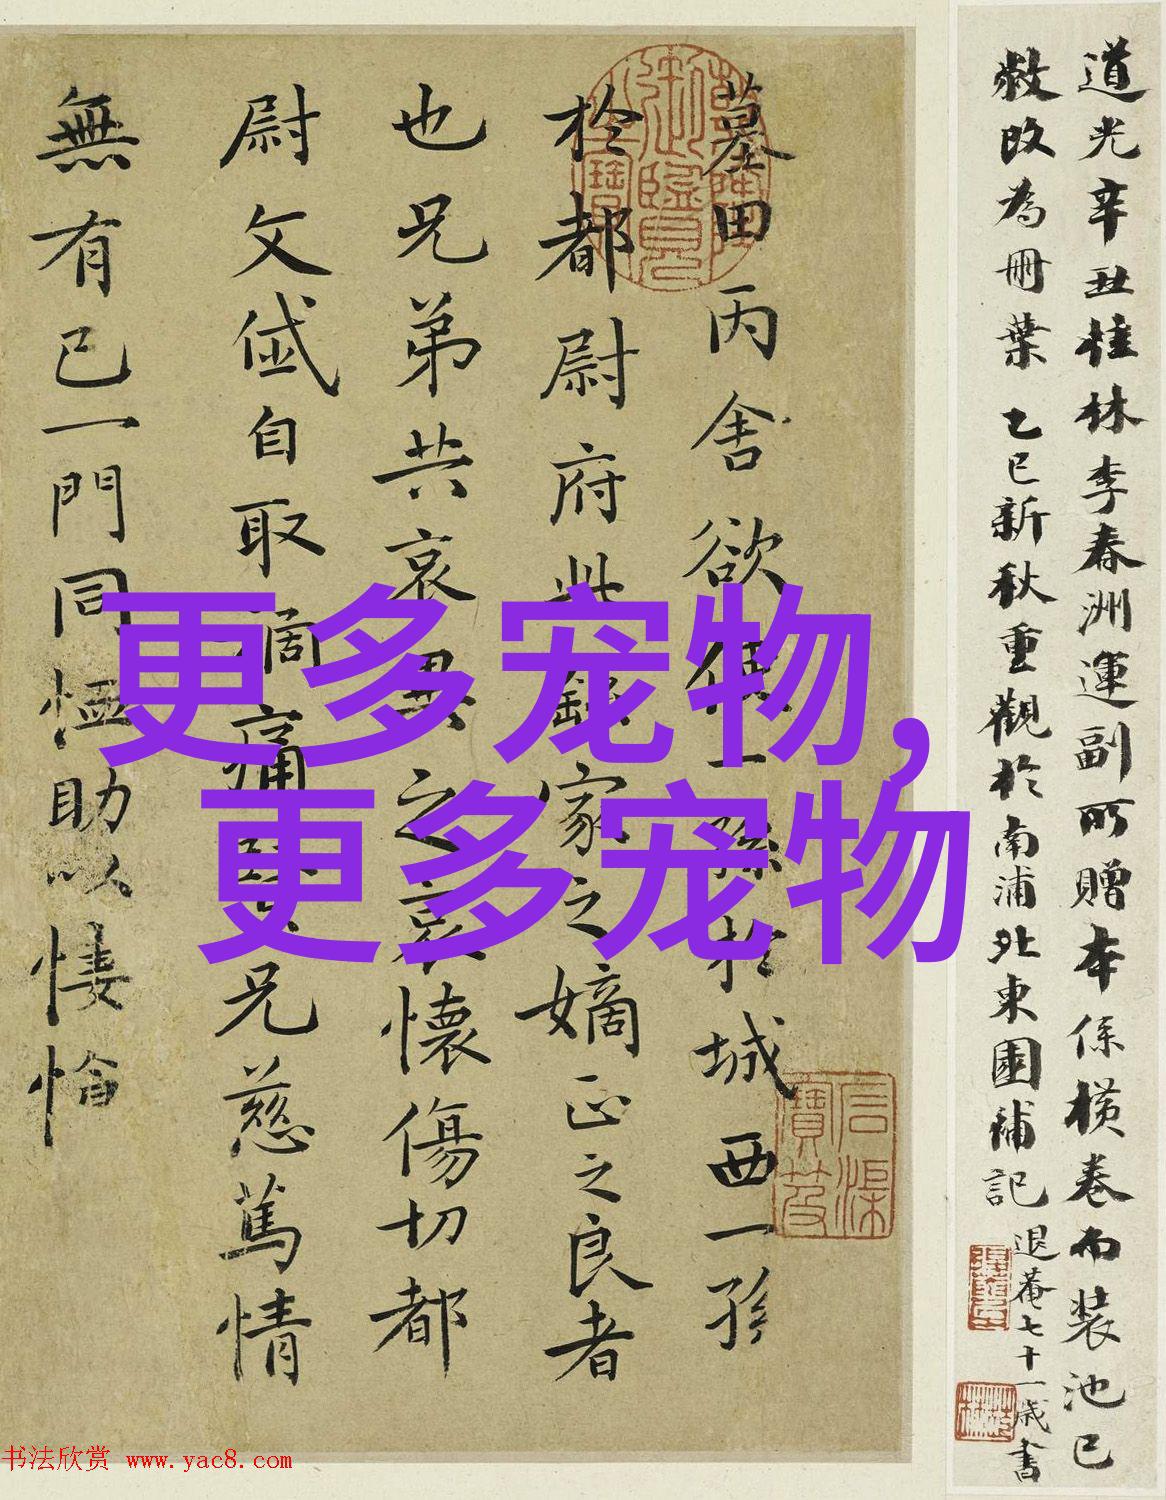 道光辛丑桂林李春洲運副所贈本係橫卷而裝池已
敝改為冊葉 乙巳新秋重觀於南浦北東園補記
退菴七十一歲書
墓田丙舍欲使一孫於城西一孫
於都尉府此繇家之嫡正之良者
也兄弟共哀異之哀懷傷切都
尉文岱自取禍痛賢兄慈篤情
無有已一門同恤助以悽愴
更多宠物,
更多宠物
書法欣赏 www.yac8.com